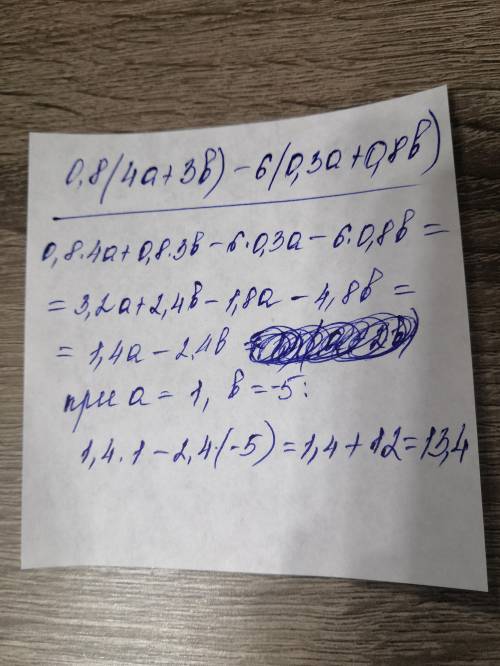 0,8(4a+3b)-6(0,3a+0,8b)
0,8·4a+0,8·3b-6·0,3a-6·0,8b=
=3,2a+2,4b-1,8a-4,8b=
=1,4a-2,4b
при a=1, b=-5:
1,4·1-2,4·(-5)=1,4+12=13,4